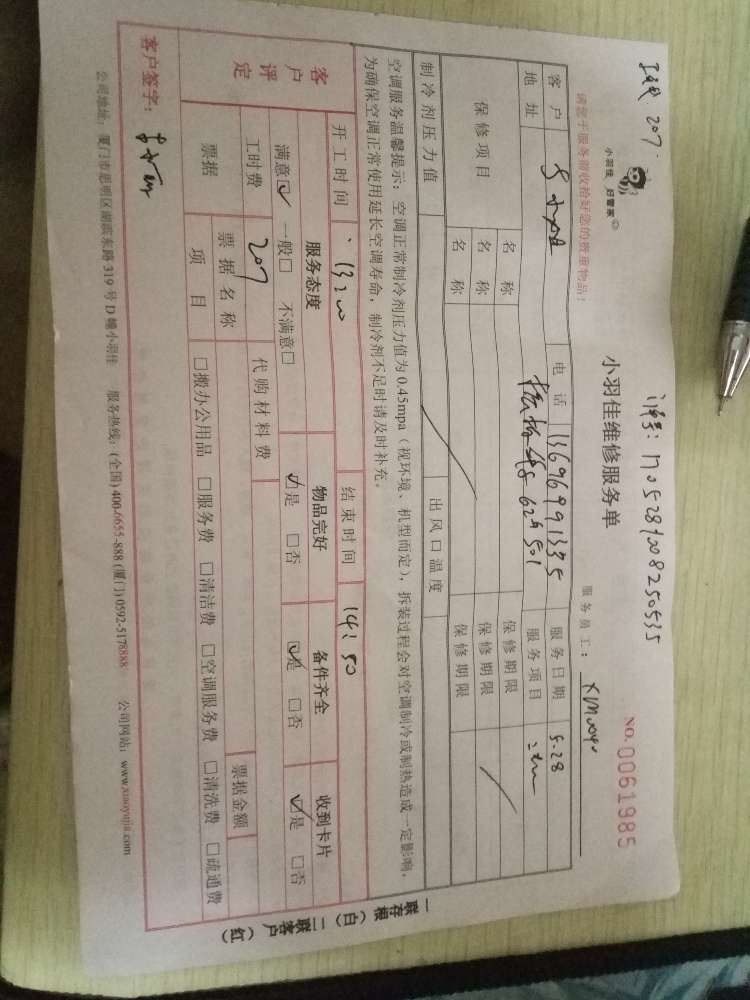 207.
订单号: 170528f008250535
小羽佳 好管家
小羽佳维修服务单
NO. 0061985
请您于服务前收拾好您的贵重物品!
服务员工:
客户 电话 服务日期 5.28
地址 62# 501 服务项目
保修项目 名称 保修期限
名称 保修期限
名称 保修期限
制冷剂压力值 出风口温度
空调服务温馨提示: 空调正常制冷剂压力值为 0.45mpa (视环境、机型而定), 拆装过程会对空调制冷或制热造成一定影响,
为确保空调正常使用延长空调寿命, 制冷剂不足时请及时补充。
开工时间 13:20 结束时间 14:50
客户评定 服务态度 物品完好 备件齐全 收到卡片
满意☑ 一般□ 不满意□ ☑是 □否 ☑是 □否 ☑是 □否
工时费 207 代购材料费
票据 票据名称 票据金额
项目 □搬办公用品 □服务费 □清洁费 □空调服务费 □清洗费 □疏通费
客户签字:
公司地址: 厦门市思明区湖滨东路 319 号 D 幢小羽佳 服务热线: (全国) 400-6655-888 (厦门) 0592-5178888 公司网站: www.xiaoyujia.com
一联存根 (白) 二联客户 (红)